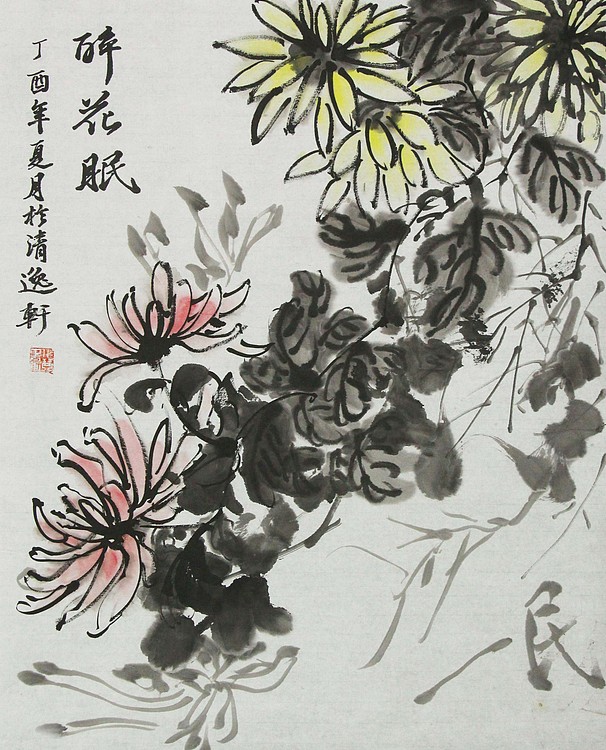 醉花眠
丁酉年夏月於清逸軒
民